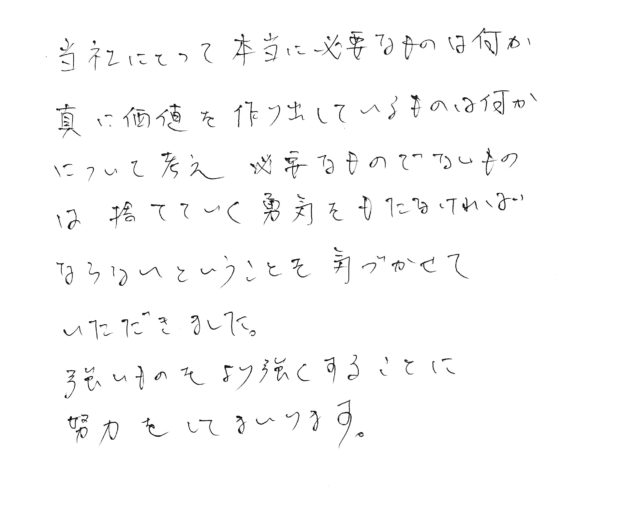 当社にとって本当に必要なものは何か
真に価値を作り出しているものは何か
について考え 必要なものでないもの
は 捨てていく勇気をもたなければ
ならないということを気づかせて
いただきました。
強いものをより強くすることに
努力をしてまいります。